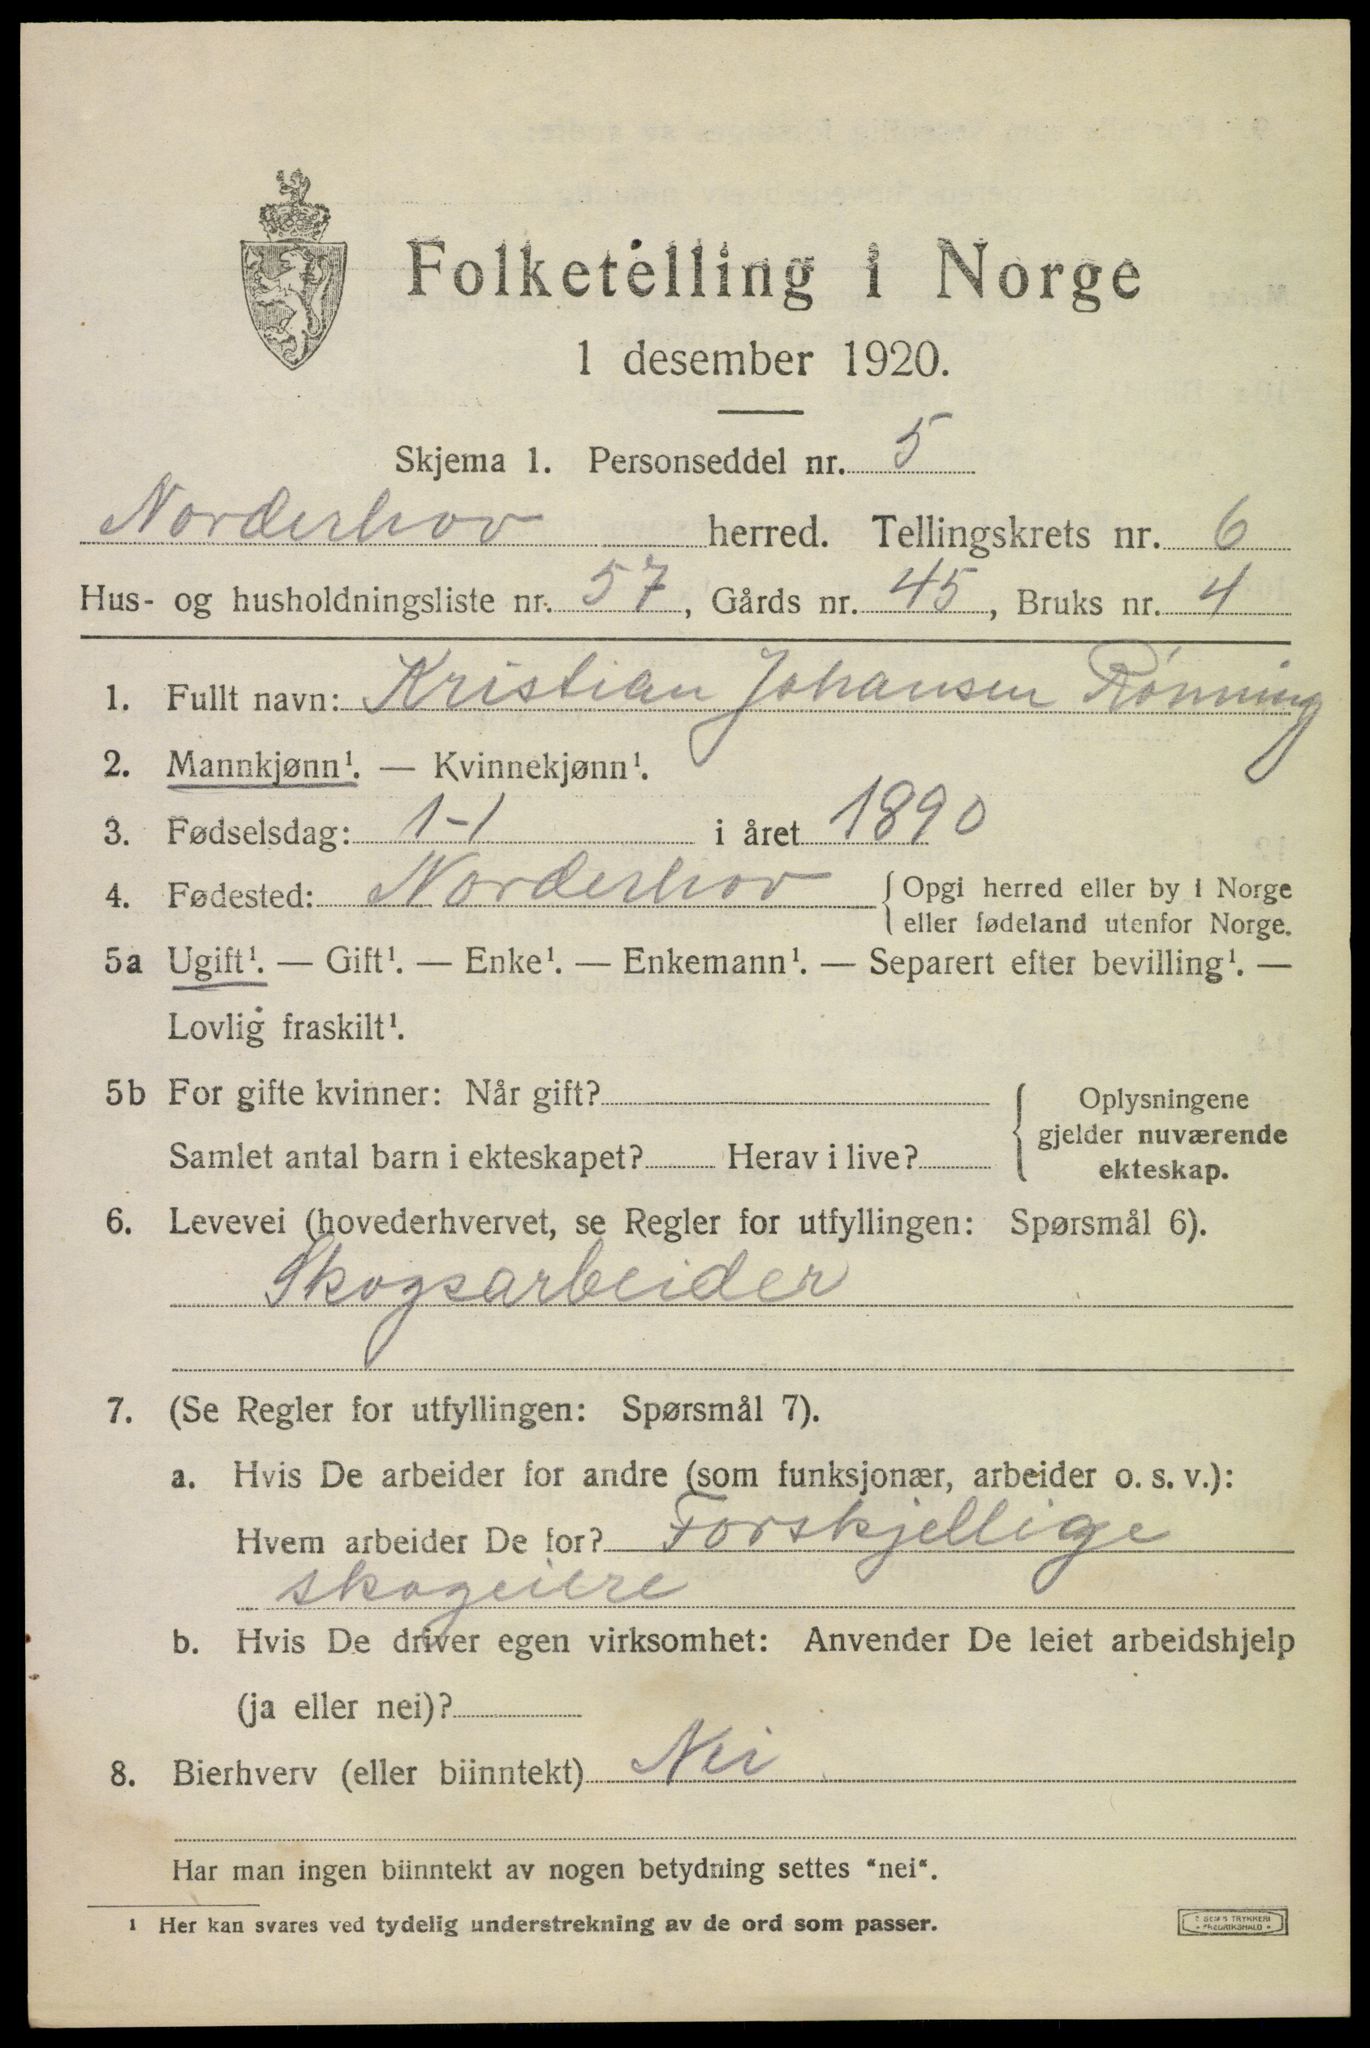 Folketelling i Norge
1 desember 1920.
Skjema 1. Personseddel nr. 5
Norderhov herred. Tellingskrets nr. 6
Hus- og husholdningsliste nr. 57, Gårds nr. 45, Bruks nr. 4
1. Fullt navn: Kristian Johansen Rønning
2. Mannkjønn¹. — Kvinnekjønn¹.
3. Fødselsdag: 1-1 i året 1890
4. Fødested: Norderhov { Opgi herred eller by i Norge
eller fødeland utenfor Norge.
5a Ugift¹. — Gift¹. — Enke¹. — Enkemann¹. — Separert efter bevilling¹. —
Lovlig fraskilt¹.
5b For gifte kvinner: Når gift?
Samlet antal barn i ekteskapet? Herav i live?
{ Oplysningene
gjelder nuværende
ekteskap.
6. Levevei (hovederhvervet, se Regler for utfyllingen: Spørsmål 6).
Skogsarbeider
7. (Se Regler for utfyllingen: Spørsmål 7).
a. Hvis De arbeider for andre (som funksjonær, arbeider o. s. v.):
Hvem arbeider De for? Forskjellige
skogeiere
b. Hvis De driver egen virksomhet: Anvender De leiet arbeidshjelp
(ja eller nei)?
8. Bierhverv (eller biinntekt) Nei
Har man ingen biinntekt av nogen betydning settes "nei".
¹ Her kan svares ved tydelig understrekning av de ord som passer.
SEM'S TRYKKERI
FREDRIKSHALD